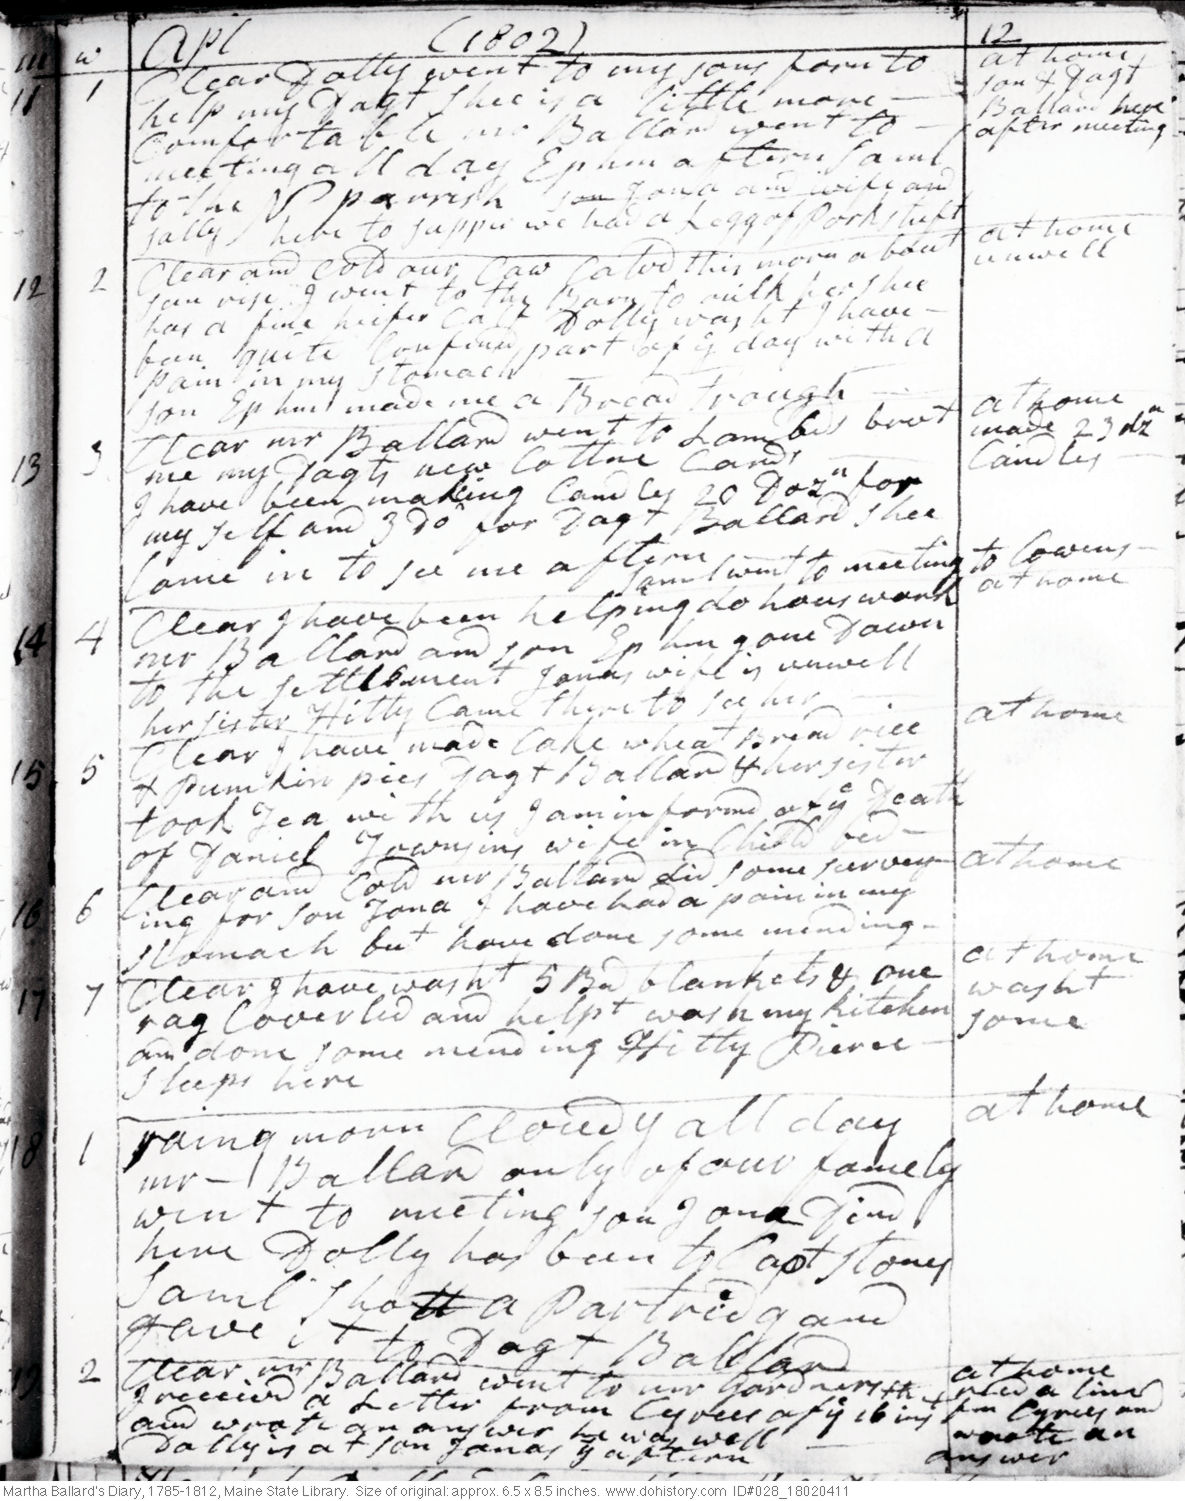 m w Apl (1802) 12
11 1 Clear Dolly went to my sons forn to
help my Dagt shee is a little more
Comfortable mr Ballard went to
meeting all day Ephm aftern Saml
to the N parrish son Jona and wife and
sally here to supper we had a Legg of Pork stuft
at home
son & Dagt
Ballard here
after meeting
12 2 Clear and Cold our Cow Calvd this morn about
sun rise I went to the Barn to milk her shee
has a fine heifer Calf Dolly washt I have
been quite Confined part of ye day with a
pain in my stomach
son Ephm made me a Bread Trough
at home
unwell
13 3 Clear mr Ballard went to Lambs brot
me my Dagts new Cottne Cards
I have been making Candles 20 Dozn for
my self and 3 Do for Dagt Ballard shee
Came in to see me aftern
Saml went to meeting to Cowens
at home
made 23 dzn
Candles
14 4 Clear I have been helping do hous work
mr Ballard and son Ephm gone Down
to the settlement Jonas wife is unwell
her sister Hitty Came there to see her
at home
15 5 Clear I have made Cake wheat Bread rice
& Pumkin pies Dagt Ballard & her sister
took Tea with us I am informd of ye Death
of Daniel Townsins wife in Child bed
at home
16 6 Clear and Cold mr Ballard did some survey
ing for son Jona I have had a pain in my
stomach but have done some mending
at home
17 7 Clear I have washt 5 Bd blankets & one
rag Coverlid and helpt wash my kitchen
and done some mending Hitty Pierce
sleeps here
at home
washt
some
18 1 raing morn Cloudy all day
mr Ballard only of our famely
went to meeting son Jona Dind
here Dolly has been to Capt Stones
Saml shott a Partridg and
gave it to Dagt Ballard
at home
19 2 Clear mr Ballard went to mr Gardners
I receivd a Letter from Cyrus of ye 16 inst
and wrote an answer he was well
Dolly is at son Jonas ys aftern
at home
recd a line
fm Cyrus and
wrote an
answer
Martha Ballard's Diary, 1785-1812, Maine State Library. Size of original: approx. 6.5 x 8.5 inches. www.dohistory.com ID#028_18020411